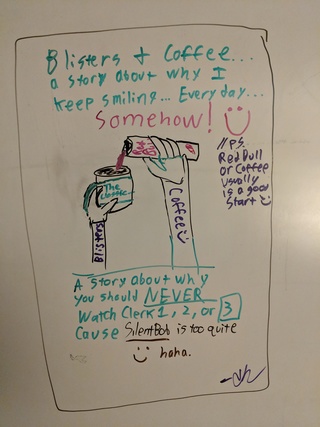 Blisters & Coffee...
a story about why I
keep smiling... Everyday...
Somehow!
//P.S.
Red Bull
or Coffee
usually
is a good
start
The
Classic...
Blisters
Coffee
A story about why
you should NEVER
Watch Clerk 1, 2, or 3
Cause SilentBob is too quite
haha.